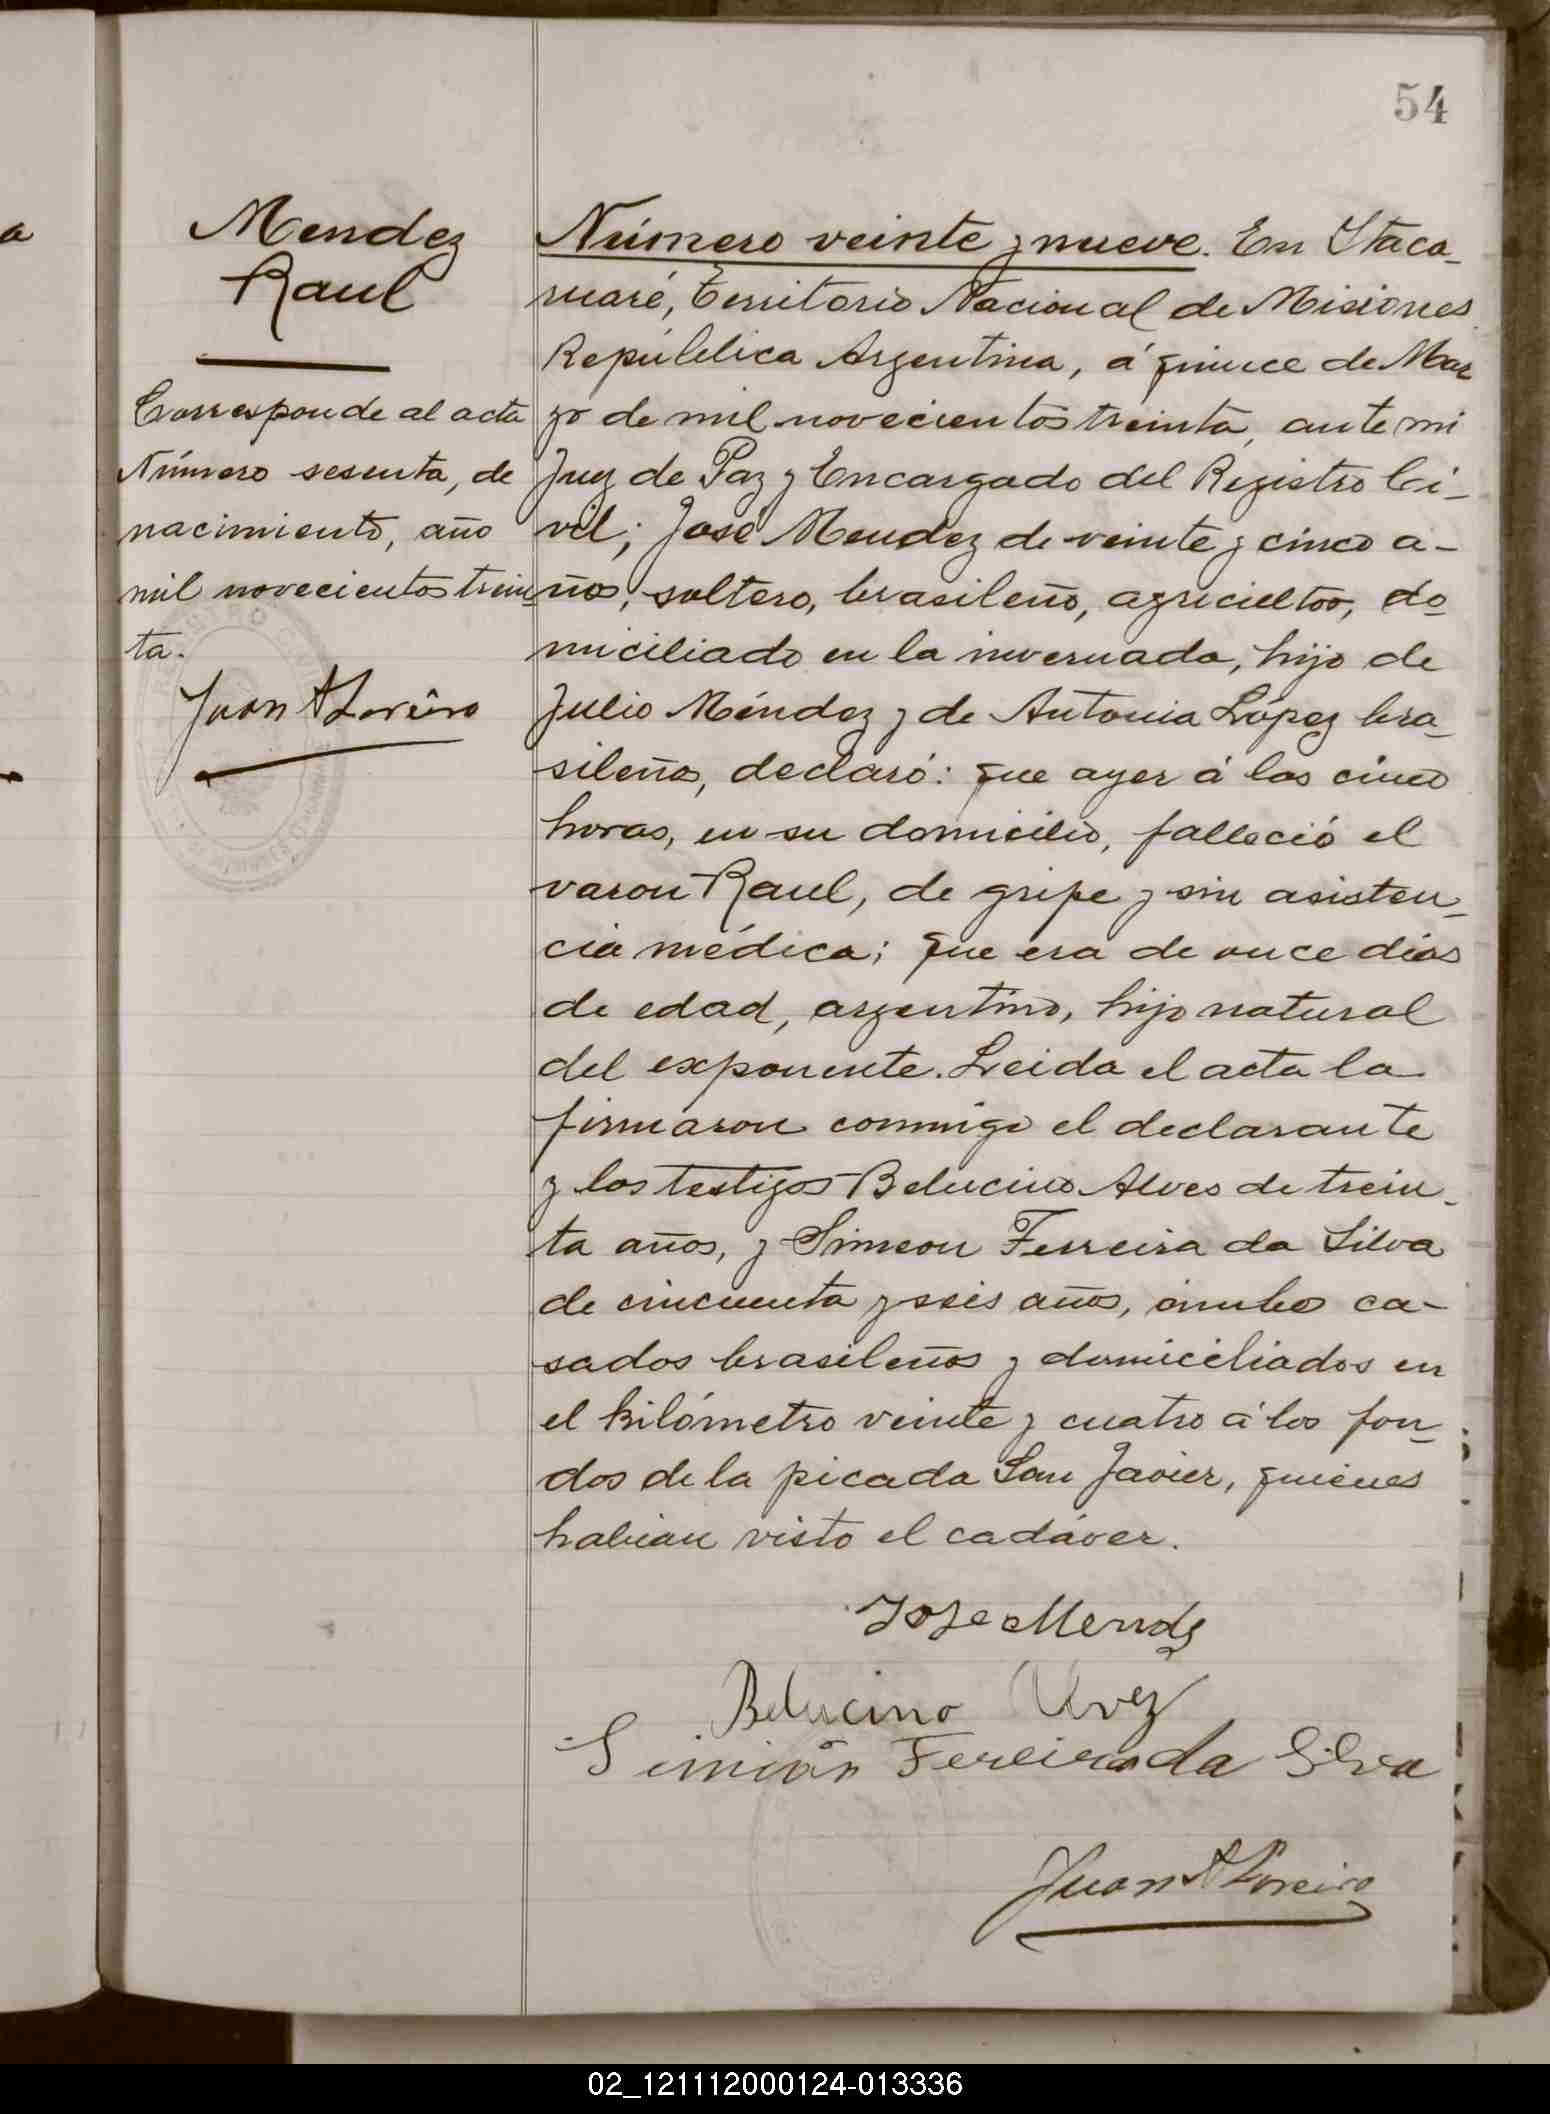 54
Mendez
Raul
Corresponde al acta
Número sesenta, de
nacimiento, año
mil novecientos trein
ta.
Juan A Loreiro
Número veinte y nueve. En Itaca-
ruaré, Territorio Nacional de Misiones
República Argentina, á quince de Mar
zo de mil novecientos treinta, ante mi
Juez de Paz y Encargado del Registro Ci-
vil; José Mendez de veinte y cinco a-
ños, soltero, brasileño, agricultor, do
miciliado en la invernada, hijo de
Julio Méndez y de Antonia López bra-
sileños, declaró: que ayer á las cinco
horas, en su domicilio, falleció el
varon Raul, de gripe y sin asisten-
cia médica; que era de once dias
de edad, argentino, hijo natural
del exponente. Leida el acta la
firmaron conmigo el declarante
y los testigos Belucino Alves de trein-
ta años, y Simeon Ferreira da Silva
de cincuenta y seis años, ámbos ca-
sados brasileños y domiciliados en
el kilómetro veinte y cuatro á los fon-
dos de la picada San Javier, quienes
habian visto el cadáver.
Jose Mendz
Belucino Alvez
Simión Fereira da Silva
Juan A Loreiro
02_121112000124-013336